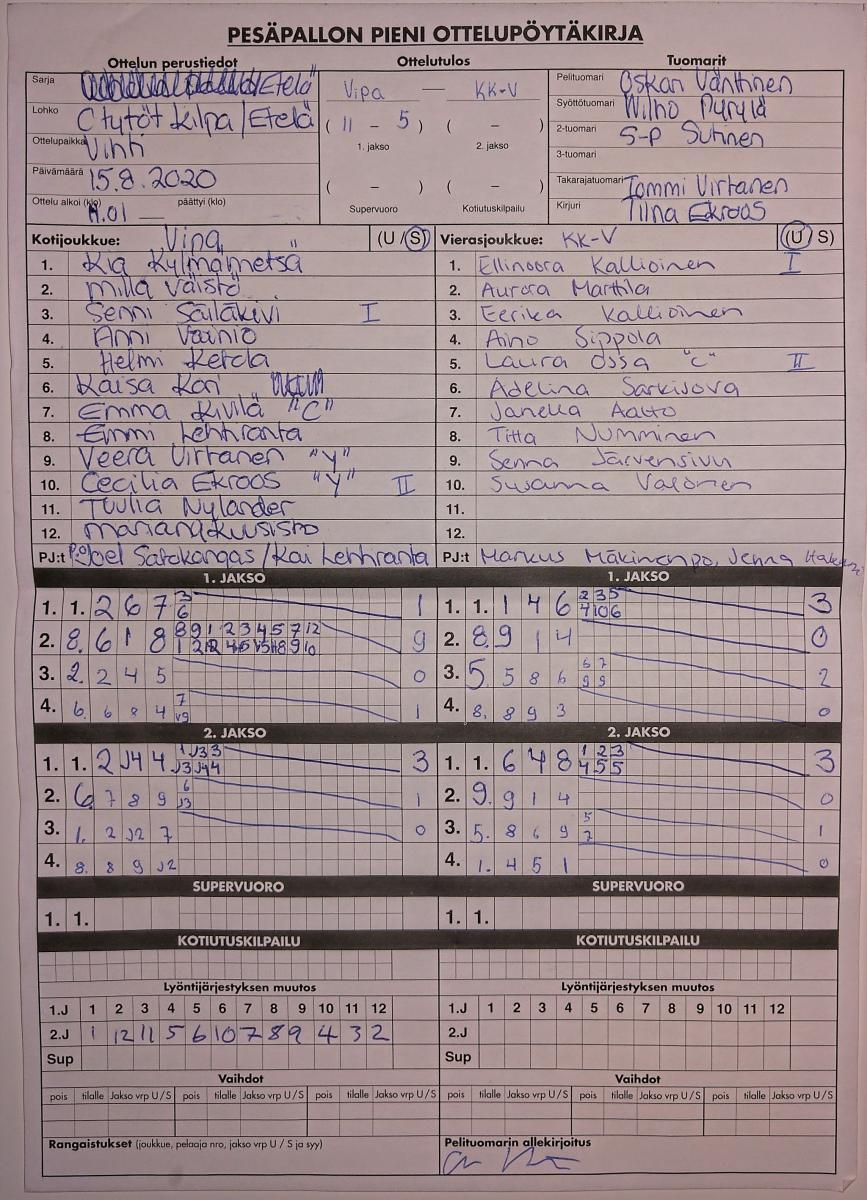 PESÄPALLON PIENI OTTELUPÖYTÄKIRJA
Ottelun perustiedot
Ottelutulos
Tuomarit
Sarja /Etelä"
Lohko C tytöt kilpa/Etelä
Ottelupaikka Vihti
Päivämäärä 15.8.2020
Ottelu alkoi (klo) 11.01 — päättyi (klo)
Vipa — KK-V
( 11 – 5 ) ( – )
1. jakso 2. jakso
( – ) ( – )
Supervuoro Kotiutuskilpailu
Pelituomari Oskari Vänttinen
Syöttötuomari Wilho Pyrylä
2-tuomari S-P Sutinen
3-tuomari
Takarajatuomari Tommi Virtanen
Kirjuri Tiina Ekroos
Kotijoukkue: Vipa (U / S)
1. Kia Kylmämetsä
2. Milla Väistö
3. Senni Säiläkivi I
4. Anni Vainio
5. Helmi Ketola
6. Kaisa Kari
7. Emma Kivilä "C"
8. Emmi Lehtiranta
9. Veera Virtanen "Y"
10. Cecilia Ekroos "Y" II
11. Tuulia Nylander
12. Mariana Kuusisto
PJ:t P.O Joel Satokangas/Kai Lehtiranta
Vierasjoukkue: KK-V (U / S)
1. Ellinoora Kallioinen I
2. Aurora Marttila
3. Eerika Kallioinen
4. Aino Sippola
5. Laura Ossa "C" II
6. Adelina Sarkisova
7. Janella Aalto
8. Titta Numminen
9. Senna Järvensivu
10. Susanna Valonen
11.
12.
PJ:t Markus Mäkinen po, Jenna
1. JAKSO
1. 1. 2 6 7 3 1
6
2. 8. 6 1 8 8 9 1 2 3 4 5 7 12 9
3. 2. 2 4 5 0
4. 6. 6 8 4 7 1
v9
1. JAKSO
1. 1. 1 4 6 2 3 5 3
4 10 6
2. 8. 9 1 4 0
3. 5. 5 8 6 6 7 2
9 9
4. 8. 8 9 3 0
2. JAKSO
1. 1. 2 J4 4 1 J3 3 3
J3 J4 4
2. 6. 7 8 9 6 1
J3
3. 1. 2 J2 7 0
4. 8. 8 9 J2
2. JAKSO
1. 1. 6 4 8 1 2 3 3
4 5 5
2. 9. 9 1 4 0
3. 5. 8 6 9 5 1
7
4. 1. 4 5 1 0
SUPERVUORO
1. 1.
SUPERVUORO
1. 1.
KOTIUTUSKILPAILU
KOTIUTUSKILPAILU
Lyöntijärjestyksen muutos
1.J 1 2 3 4 5 6 7 8 9 10 11 12
2.J 1 12 11 5 6 10 7 8 9 4 3 2
Sup
Lyöntijärjestyksen muutos
1.J 1 2 3 4 5 6 7 8 9 10 11 12
2.J
Sup
Vaihdot
pois tilalle Jakso vrp U / S pois tilalle Jakso vrp U / S pois tilalle Jakso vrp U / S
Vaihdot
pois tilalle Jakso vrp U / S pois tilalle Jakso vrp U / S pois tilalle Jakso vrp U / S
Rangaistukset (joukkue, pelaaja nro, jakso vrp U / S ja syy)
Pelituomarin allekirjoitus